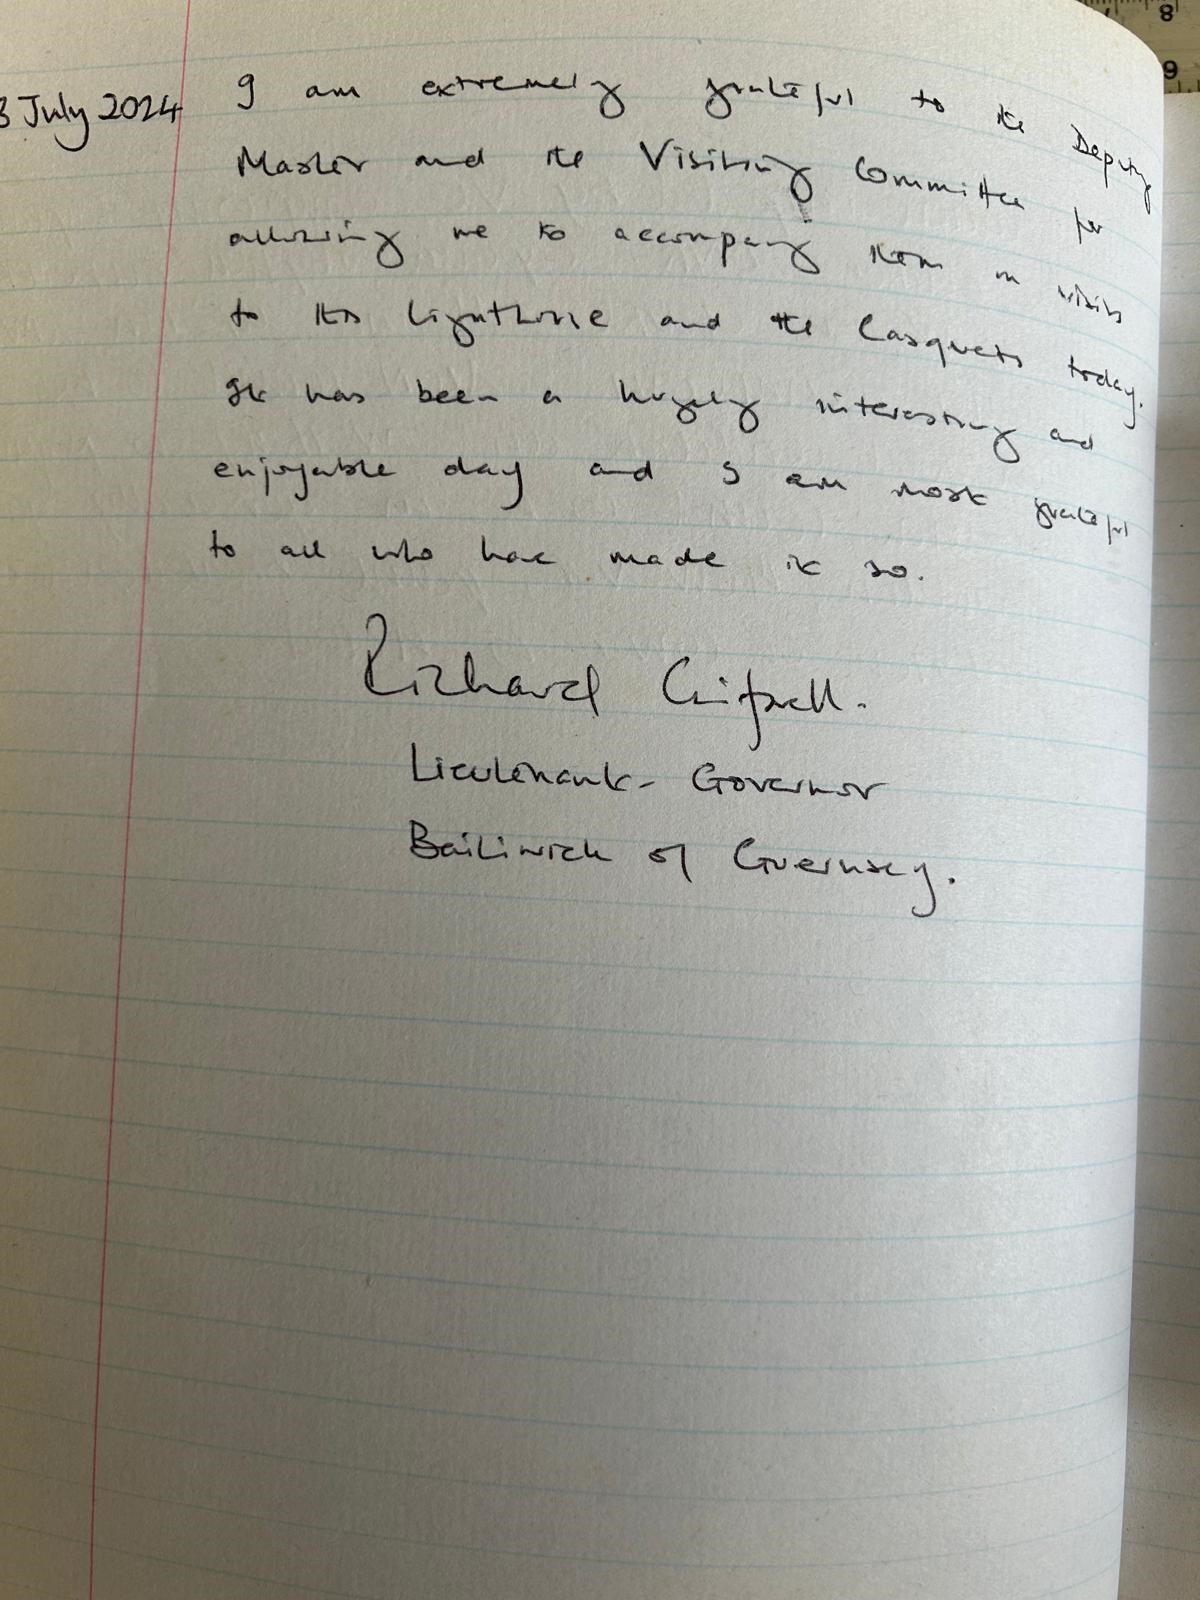 3 July 2024
I am extremely grateful to the Deputy
Master and the Visiting Committee for
allowing me to accompany them on visits
to this Lighthouse and the Casquets today.
It has been a hugely interesting and
enjoyable day and I am most grateful
to all who have made it so.
Richard Cripwell.
Lieutenant-Governor
Bailiwick of Guernsey.
8
9